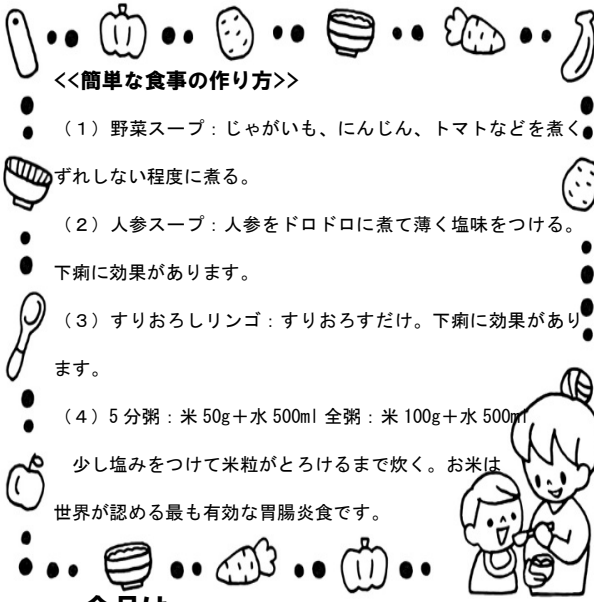 <<簡単な食事の作り方>>
（１）野菜スープ：じゃがいも、にんじん、トマトなどを煮く
ずれしない程度に煮る。
（２）人参スープ：人参をドロドロに煮て薄く塩味をつける。
下痢に効果があります。
（３）すりおろしリンゴ：すりおろすだけ。下痢に効果があり
ます。
（４）5 分粥：米 50g＋水 500ml 全粥：米 100g＋水 500ml
少し塩みをつけて米粒がとろけるまで炊く。お米は
世界が認める最も有効な胃腸炎食です。